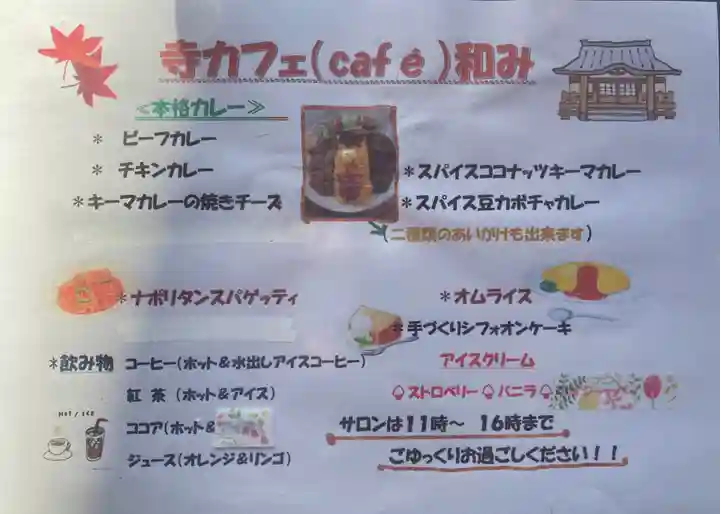 寺カフェ(café)和み
≪本格カレー≫
* ビーフカレー
* チキンカレー
*キーマカレーの焼きチーズ
*スパイスココナッツキーマカレー
*スパイス豆カボチャカレー
(二種類のあいがけも出来ます)
*ナポリタンスパゲッティ
*オムライス
*手づくりシフォオンケーキ
*飲み物 コーヒー(ホット&水出しアイスコーヒー)
紅 茶 (ホット&アイス)
ココア(ホット&
ジュース(オレンジ&リンゴ)
HOT / ICE
アイスクリーム
ストロベリー バニラ
サロンは11時~ 16時まで
ごゆっくりお過ごしください!!